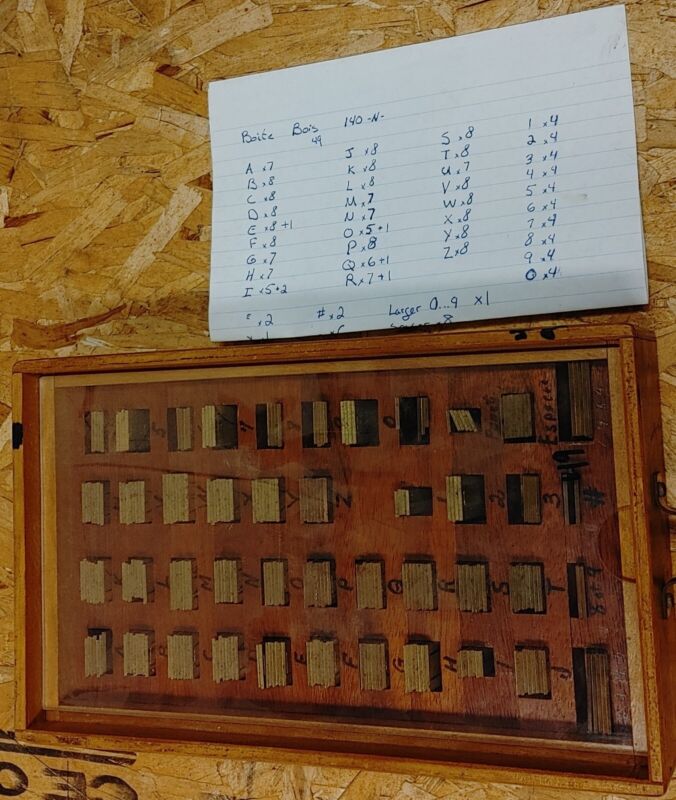 Boite Bois 140 -N-
49
A x7
B x8
C x8
D x8
E x8 +1
F x8
G x7
H x7
I x5+2
J x8
K x8
L x8
M x7
N x7
O x5+1
P x8
Q x6+1
R x7+1
S x8
T x8
U x7
V x8
W x8
X x8
Y x8
Z x8
1 x4
2 x4
3 x4
4 x4
5 x4
6 x4
7 x4
8 x4
9 x4
0 x4
x2
# x2
Larger 0...9 x1
5
7
8
9
0
Z
1
2
3
49
#
K
L
M
N
O
P
Q
R
S
T
A
B
C
D
E
F
G
H
I
J